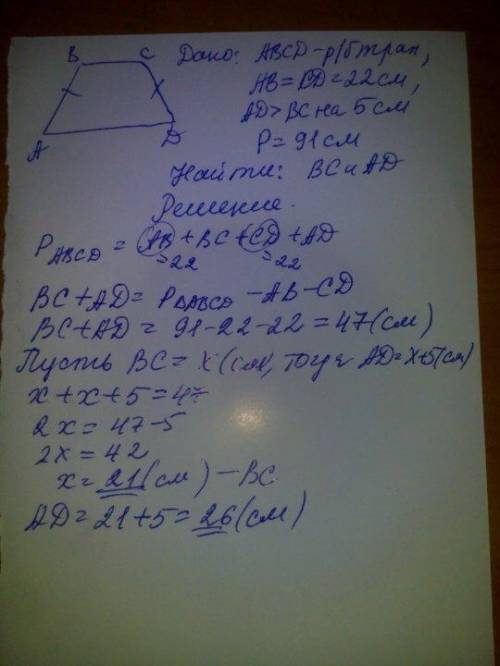 B C Дано: ABCD - р/б трап,
AB = CD = 22 см,
AD > BC на 5 см
A D P = 91 см
Найти: BC и AD
Решение.
P ABCD = AB + BC + CD + AD
=22 =22
BC + AD = P ABCD - AB - CD
BC + AD = 91 - 22 - 22 = 47 (см)
Пусть BC = x (см), тогда AD = x+5 (см)
x + x + 5 = 47
2x = 47 - 5
2x = 42
x = 21 (см) - BC
AD = 21 + 5 = 26 (см)